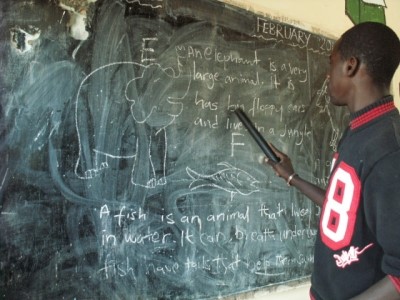 FEBRUARY 20
E
An elephant is a very
large animal. It is
has big floppy ears
and live in a Jungle
F
A fish is an animal that lives
in water. It can breathe under
fish have tails that
8